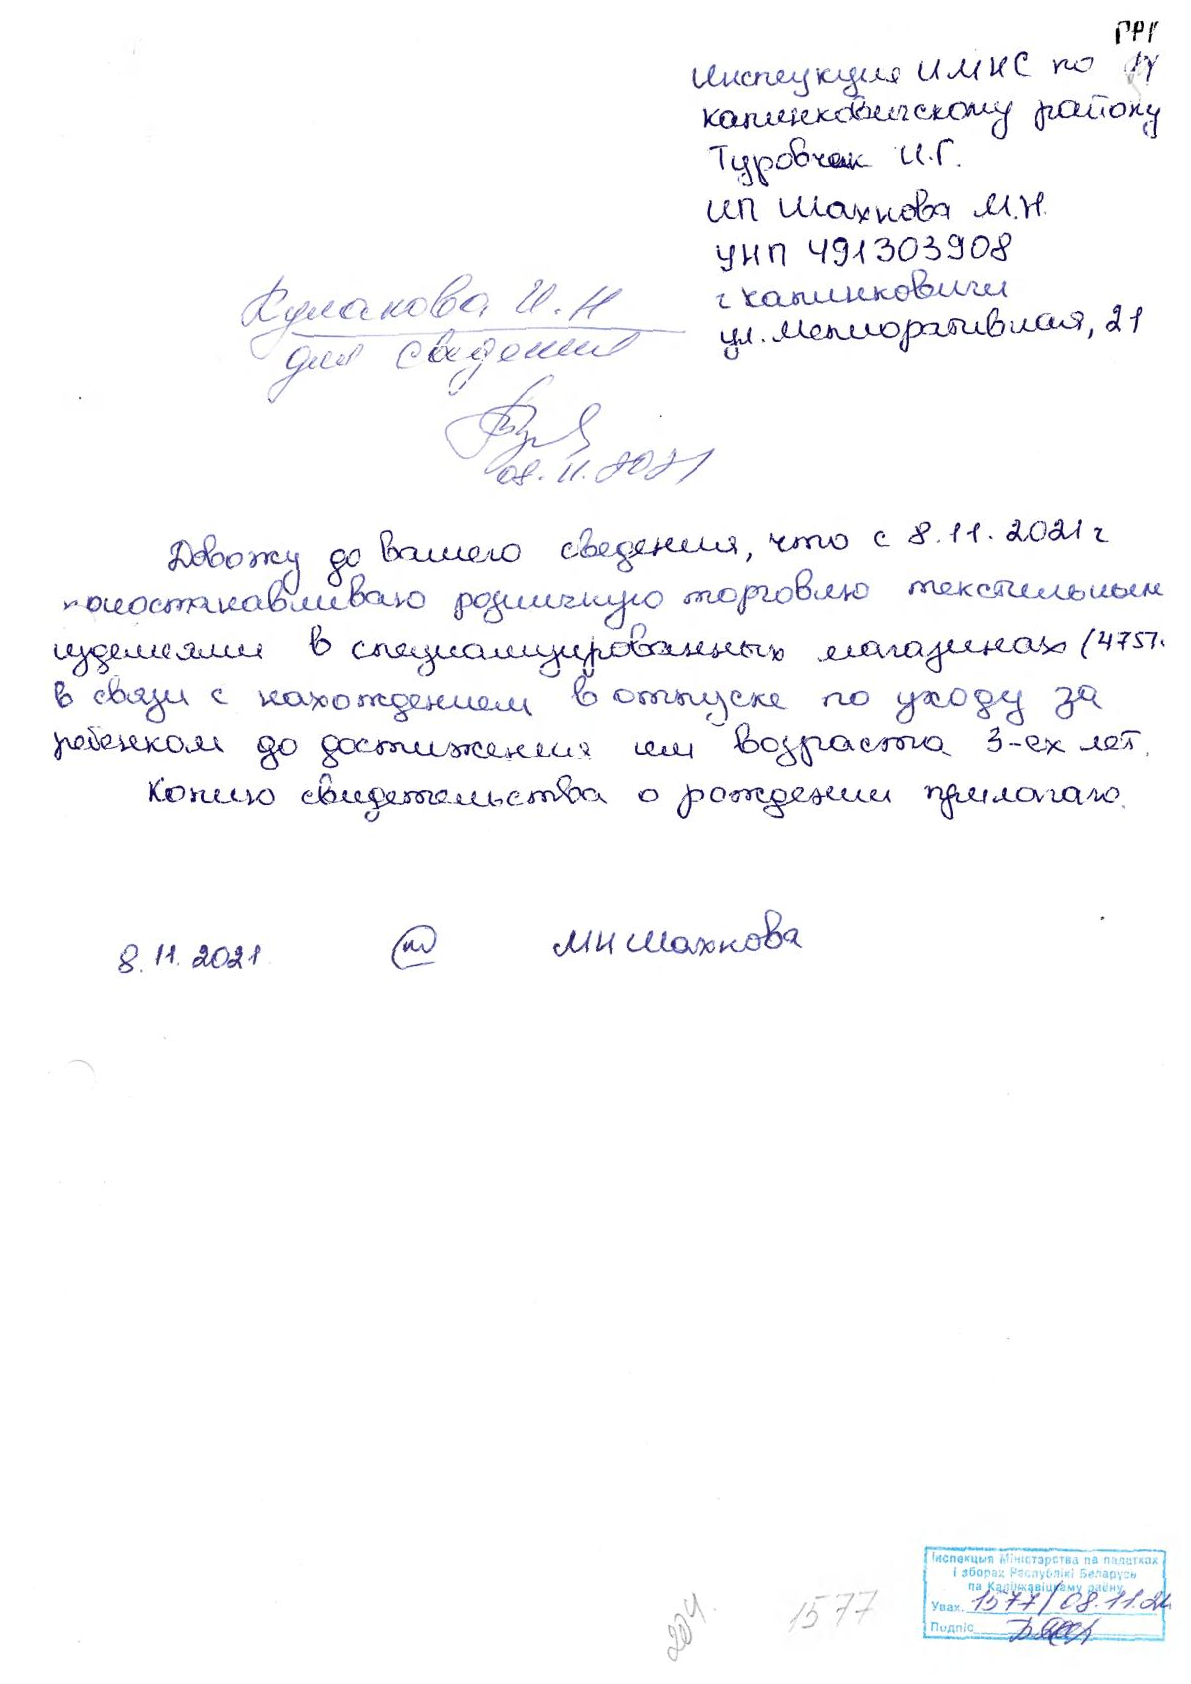 ГРП
Инспекция ИМНС по
Калинковичскому району
Туровчак И.Г.
ИП Шахнова М.Н.
УНП 491303908
г Калинковичи
ул. Мелиоративная, 21
Кулакова И.Н
для сведения
08.11.2021
Довожу до вашего сведения, что с 8.11.2021 г
приостанавливаю розничную торговлю текстильными
изделиями в специализированных магазинах (4751
в связи с нахождением в отпуске по уходу за
ребенком до достижения им возраста 3-ех лет.
Копию свидетельства о рождении прилагаю.
8.11.2021 МН Шахнова
Інспекцыя Міністэрства па падатках
і зборах Рэспублікі Беларусь
па Калінкавіцкаму раёну
Увах. 1577/08.11.21
Подпіс
204. 1577